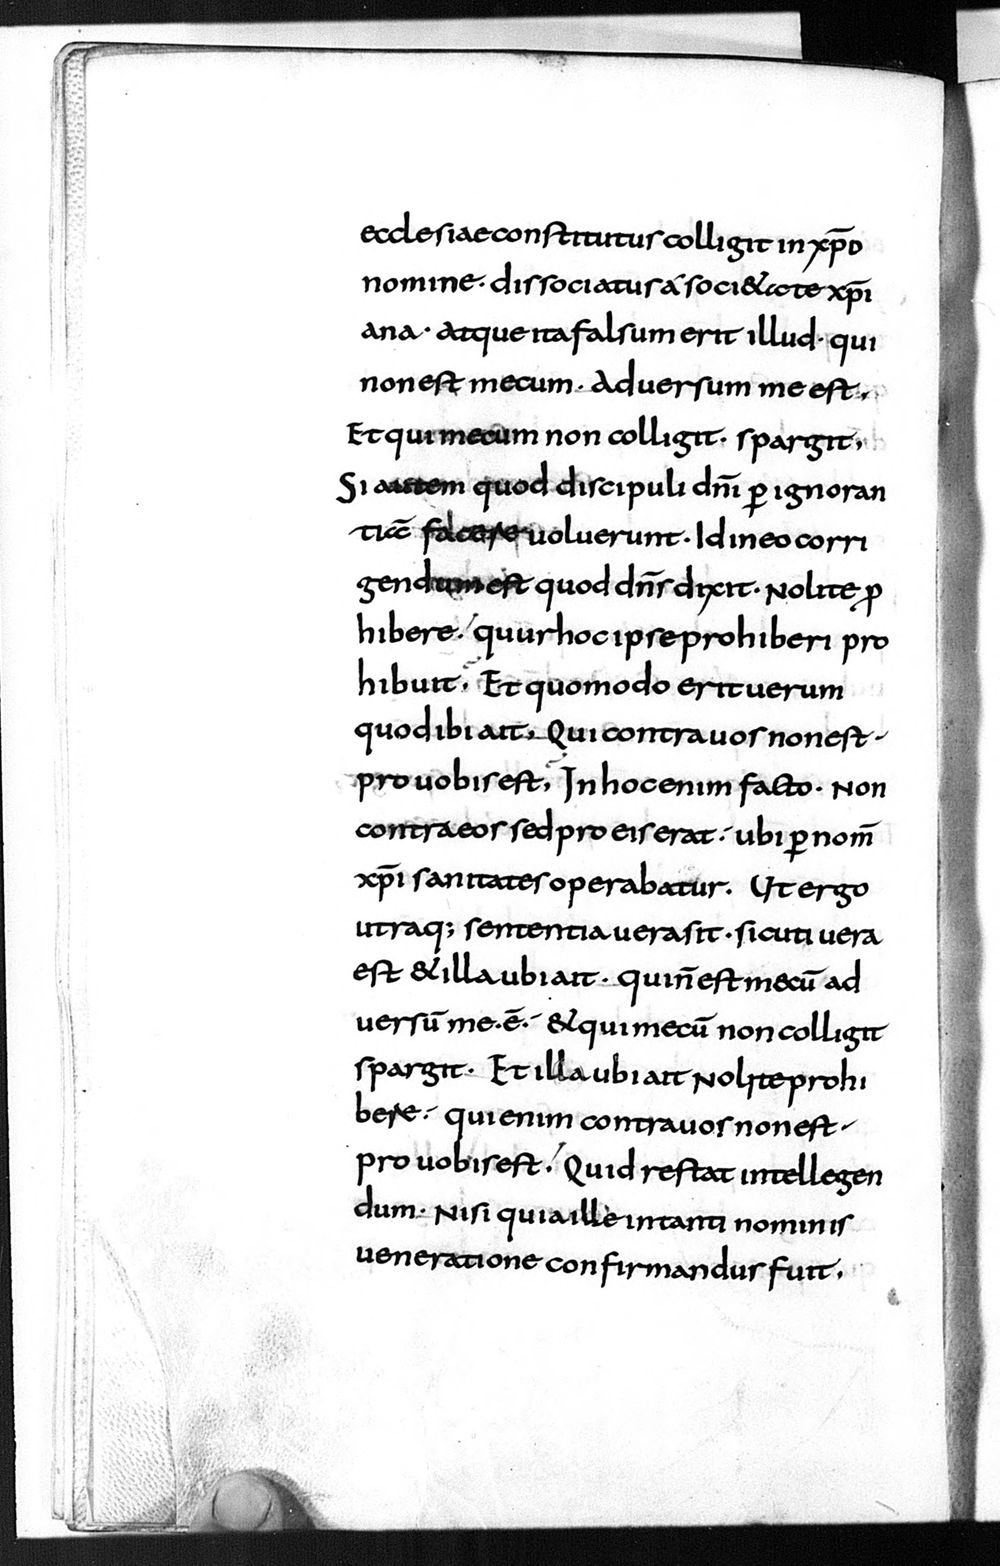 ecclesiae constitutus colligit in xp̄o
nomine· dissociatus á soci&ate xp̄i
ana· atque ita falsum erit illud· qui
non est mecum· Aduersum me est,
Et qui mecum non colligit· spargit,
Si autem quod discipuli dn̄i ꝑ ignoran
tiā facere uoluerunt· Id in eo corri
gendum est quod dn̄s dixit· Nolite ꝓ
hibere·/ quur hoc ipse prohiberi pro
hibuit, Et quomodo erit uerum
quod ibi ait, Qui contra uos non est
pro uobis est, In hoc enim facto· Non
contra eos sed pro eis erat·/ ubi ꝑ nom̄
xp̄i sanitates operabatur. Ut ergo
utraq; sententia uera sit· sicuti uera
est & illa ubi ait· qui n̄ est mecū ad
uersū me·ē·/ & qui mecū non colligit
spargit· Et illa ubi ait Nolite prohi
bere·/ qui enim contra uos non est
pro uobis est·/ Quid restat intellegen
dum· Nisi quia ille in tanti nominis
ueneratione confirmandus fuit,